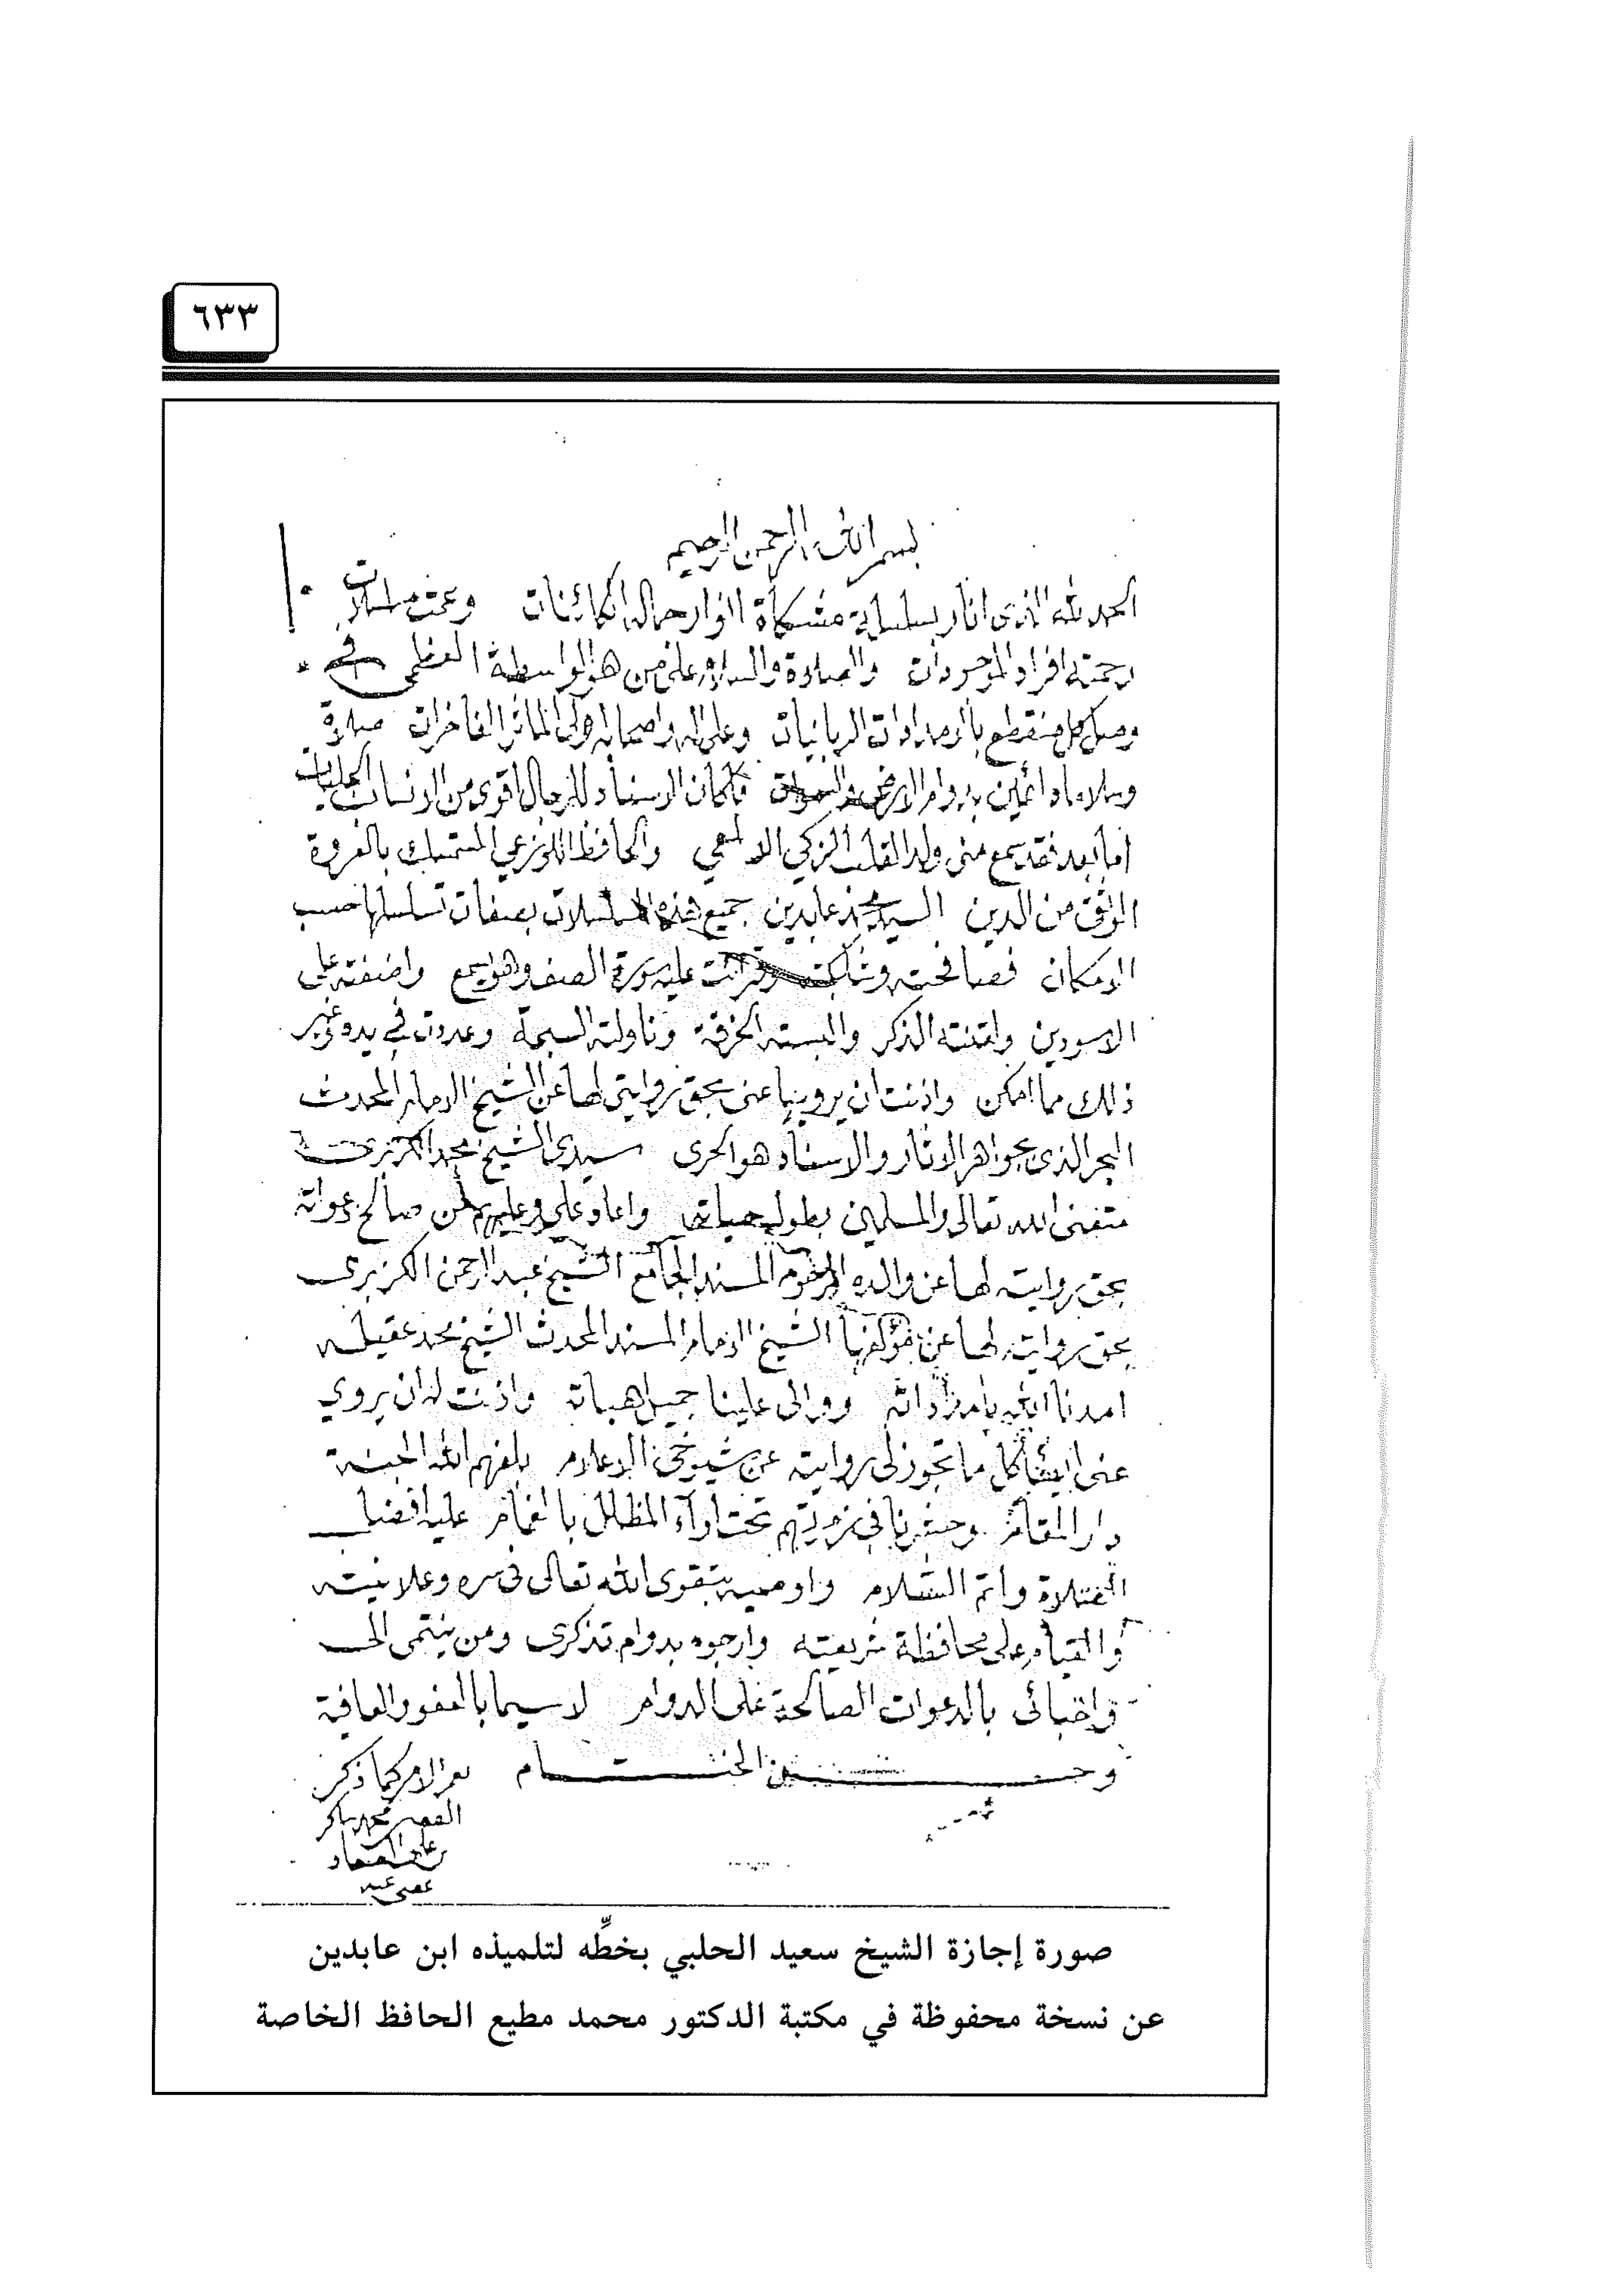 ٦٣٣
بسم الله الرحمن الرحيم
الحمد لله الذي انار بسلسلة مشكاة انوار جماله الكائنات وعمت مسلسلات
رحمته افراد الموجودات والصلاة والسلام على من هو الواسطة العظمى في
وصل كل منقطع بالامدادات الربانيات وعلى اله واصحابه اولى المآثر الفاخرات صلاة
وسلاما دائمين بدوام الارض والسموات ما كان الاسناد للرجال اقوى من الانساب الجليات
اما بعد فقد سمع مني ولد القلب الزكي الالمعي والحافظ اللوذعي المتمسك بالعروة
الوثقى من الدين السيد محمد عابدين جميع هذه المسلسلات بصفات تسلسلها حسب
الامكان فصافحته وشابكته وقرات عليه سورة الصف وهو يسمع واضفته على
الاسودين ولقنته الذكر والبسته الخرقة وناولته السبحة وعددت في يده وغير
ذلك مما امكن واذنت ان يرويها عني بحق روايتي لها عن الشيخ الامام المحدث
البحر الذي بجواهر الاثار والاسناد هو الحرى سيدي الشيخ محمد الكزبرى
متعنى الله تعالى والمسلمين بطول حياته واعاد علي وعليهم من صالح دعواته
بحق روايته لها عن والده المرحوم المسند الجامع الشيخ عبد الرحمن الكزبرى
بحق روايته لها عن مؤلفها الشيخ الامام المسند المحدث الشيخ محمد عقيله
امدنا الله بامداداته ووالى علينا جميل هباته واذنت له ان يروي
عني ايضا كل ما تجوز لى روايته عن شيوخى الاعلام بلغهم الله الجنة
دار المقام وحشرنا في زمرتهم تحت لوآء المظلل بالغمام عليه افضل
الصلاة واتم السلام واوصيه بتقوى الله تعالى فى سره وعلانيته
والقيام على محافظة شريعته وارجوه بدوام تذكرى ومن ينتمى الى
واحبائى بالدعوات الصالحة على الدوام لا سيما بالعفو والعافية
وحسن الختام نعم الامر كما ذكر
الفقير محمد شاكر
بن علي العقاد
عفي عنه
صورة إجازة الشيخ سعيد الحلبي بخطِّه لتلميذه ابن عابدين
عن نسخة محفوظة في مكتبة الدكتور محمد مطيع الحافظ الخاصة